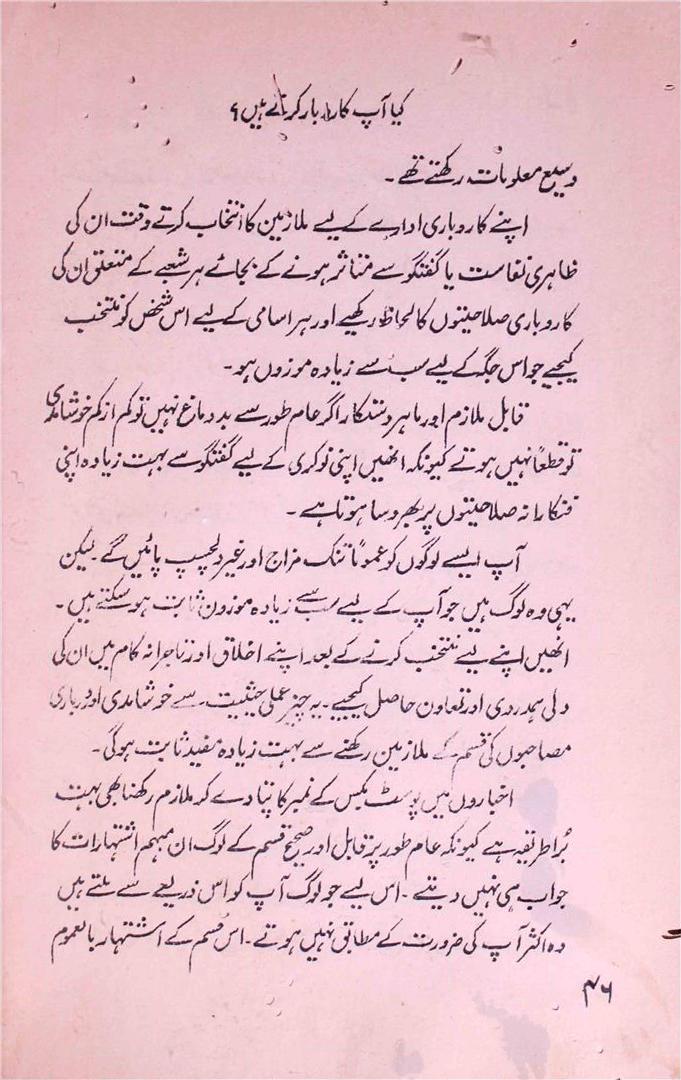 کیا آپ کاروبار کرتے ہیں؟
وسیع معلومات رکھتے تھے۔
اپنے کاروباری ادارے کے لیے ملازمین کا انتخاب کرتے وقت ان کی
ظاہری نفاست یا گفتگو سے متاثر ہونے کے بجائے ہر شعبے کے متعلق ان کی
کاروباری صلاحیتوں کا لحاظ رکھیے اور ہر اسامی کے لیے اس شخص کو منتخب
کیجیے جو اس جگہ کے لیے سب سے زیادہ موزوں ہو۔
قابل ملازم اور ماہر دستکار اگر عام طور سے بددماغ نہیں تو کم از کم خوشامدی
تو قطعاً نہیں ہوتے کیونکہ انھیں اپنی نوکری کے لیے گفتگو سے بہت زیادہ اپنی
فنکارانہ صلاحیتوں پر بھروسا ہوتا ہے۔
آپ ایسے لوگوں کو عموماً تنک مزاج اور غیر دلچسپ پائیں گے۔ لیکن
یہی وہ لوگ ہیں جو آپ کے لیے سب سے زیادہ موزوں ثابت ہو سکتے ہیں۔
انھیں اپنے لیے منتخب کرنے کے بعد اپنے اخلاق اور تاجرانہ کام میں ان کی
دلی ہمدردی اور تعاون حاصل کیجیے۔ یہ چیز عملی حیثیت سے خوشامدی اور درباری
مصاحبوں کی قسم کے ملازمین رکھنے سے بہت زیادہ مفید ثابت ہوگی۔
اخباروں میں پوسٹ بکس کے نمبر کا پتا دے کر ملازم رکھنا بھی بہت
بُرا طریقہ ہے کیونکہ عام طور پر قابل اور صحیح قسم کے لوگ ان مبہم اشتہارات کا
جواب ہی نہیں دیتے۔ اس لیے جو لوگ آپ کو اس ذریعے سے ملتے ہیں
وہ اکثر آپ کی ضرورت کے مطابق نہیں ہوتے۔ اس قسم کے اشتہار بالعموم
۴۶